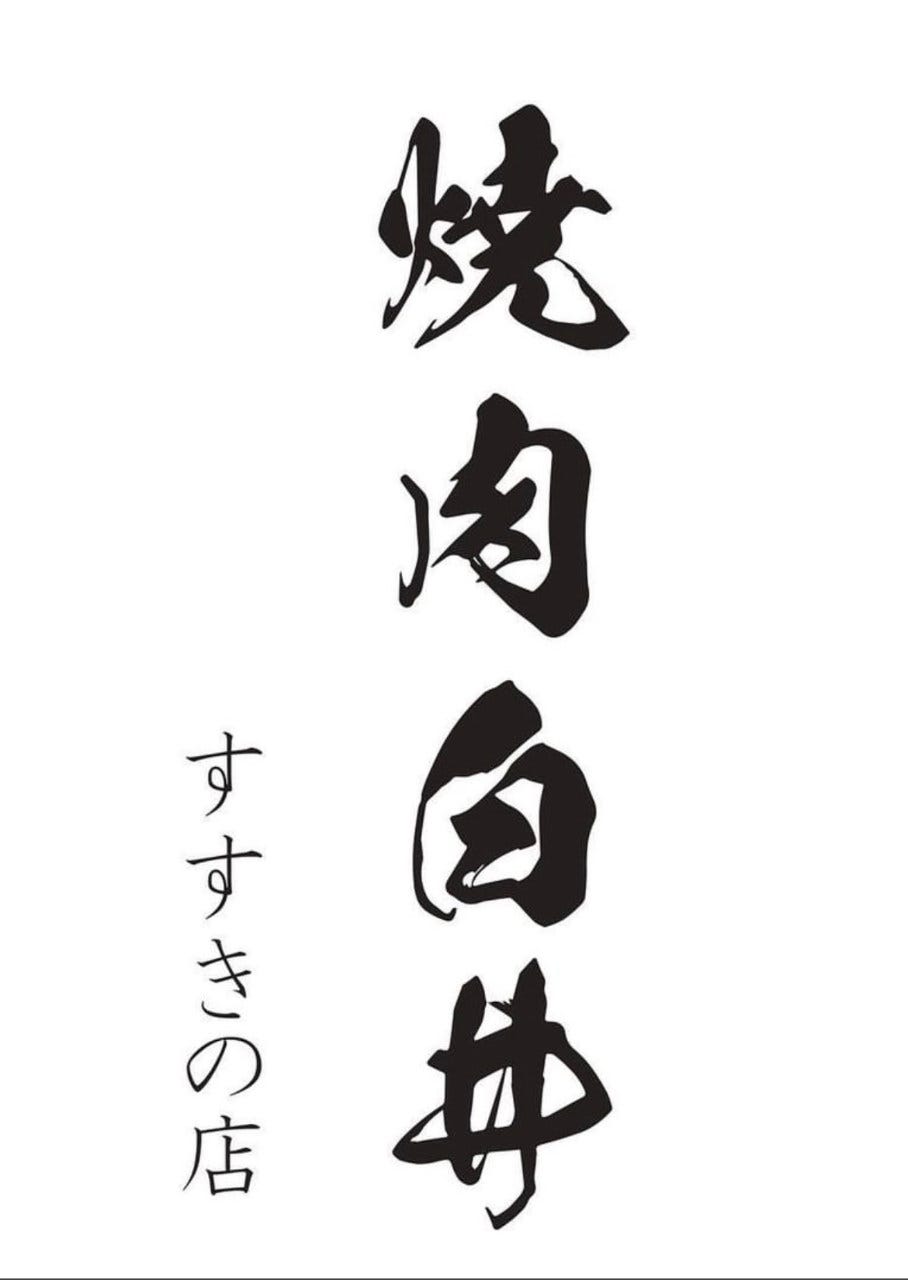 焼肉白井
すすきの店